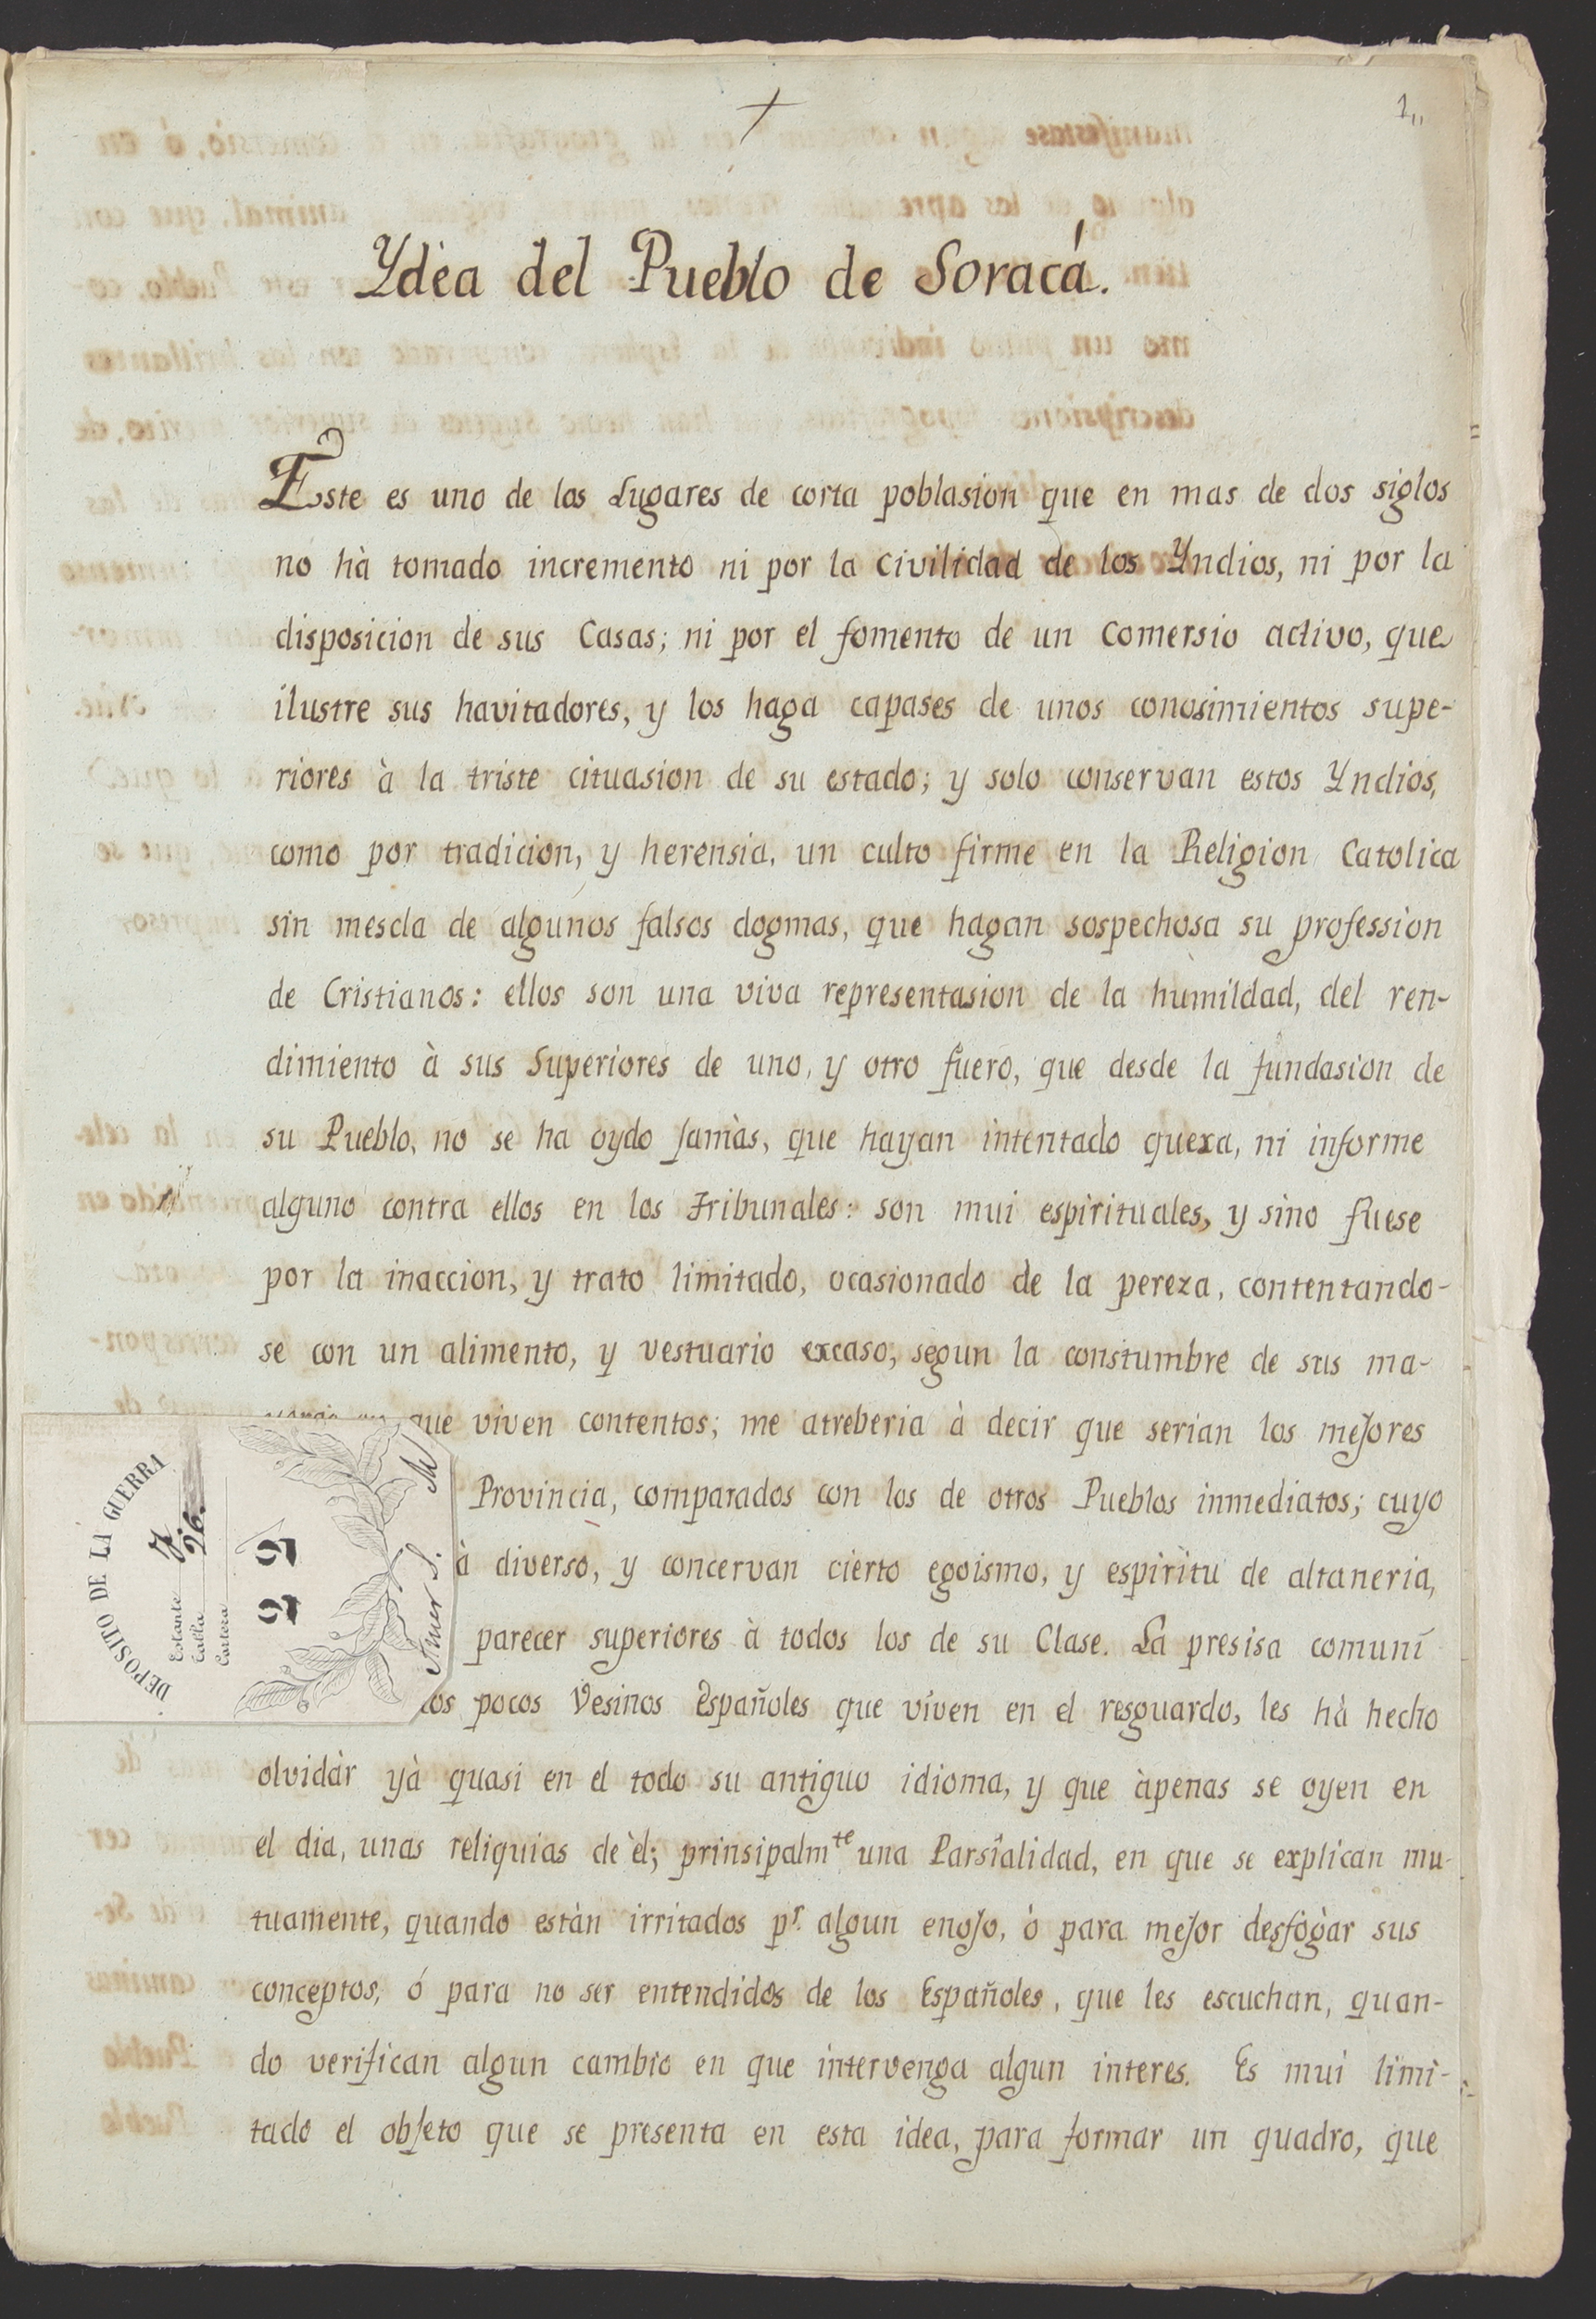 1,,
Ydèa del Pueblo de Soracá.
Este es uno de los Lugares de corta poblasion que en mas de dos siglos
no hà tomado incremento ni por la civilidad de los Yndios, ni por la
disposicion de sus Casas; ni por el fomento de un comersio activo, que
ilustre sus havitadores, y los haga capases de unos conosimientos supe-
riores à la triste cituasion de su estado; y solo conservan estos Yndios,
como por tradicion, y herensia, un culto firme en la Religion Catolica
sin mescla de algunos falsos dogmas, que hagan sospechosa su profession
de Cristianos: ellos son una viva representasion de la humildad, del ren-
dimiento à sus Superiores de uno, y otro fuero, que desde la fundasion de
su Pueblo, no se ha oydo Jamàs, que hayan intentado quexa, ni informe
alguno contra ellos en los Tribunales: son mui espirituales, y sino fuese
por la inaccion, y trato limitado, ocasionado de la pereza, contentando-
se con un alimento, y vestuario excaso, segun la constumbre de sus ma-
que viven contentos; me atreberia à decir que serian los meJores
Provincia, comparados con los de otros Pueblos inmediatos; cuyo
à diverso, y concervan cierto egoismo, y espiritu de altaneria,
parecer superiores à todos los de su Clase. La presisa comuni
los pocos Vesinos Españoles que viven en el resguardo, les hà hecho
olvidàr yà quasi en el todo su antiguo idioma, y que àpenas se oyen en
el dia, unas reliquias de èl; prinsipalmte una Parsialidad, en que se explican mu-
tuamente, quando estàn irritados pr. algun enoJo, ò para meJor desfogàr sus
conceptos, ó para no ser entendidos de los Españoles, que les escuchan, quan-
do verifican algun cambio en que intervenga algun interes. Es mui limi-
tado el obJeto que se presenta en esta idea, para formar un quadro, que
DEPOSITO DE LA GUERRA
Estante J.
Tabla 26.
Cartera
22
Amer S. M